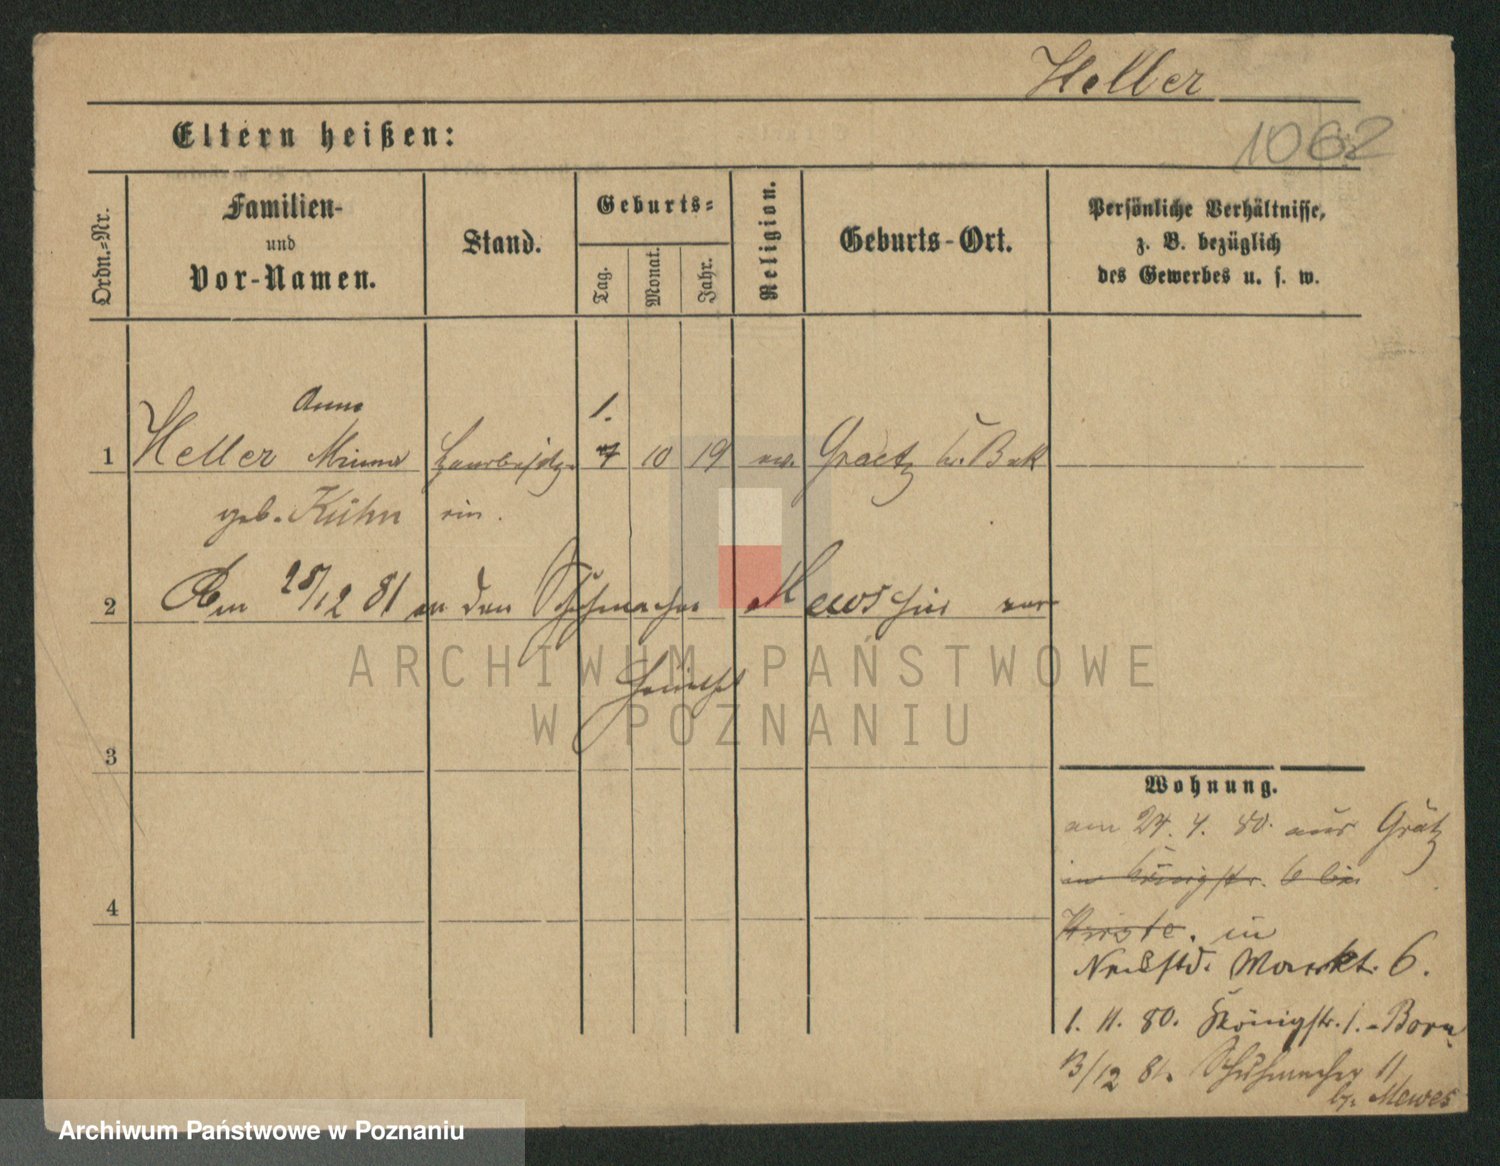 Heller
1062
Eltern heißen:
Ordn.-Nr.
Familien-
und
Vor-Namen.
Stand.
Geburts-
Tag.
Monat.
Jahr.
Religion.
Geburts-Ort.
Persönliche Verhältnisse,
z. B. bezüglich
des Gewerbes u. s. w.
Anna
1.
1 Heller Minna 7 10 19 ev. Graetz Kr. Buk
geb. Kühn rin.
2 Am 28/12 81 an den Schuhmacher Mews hier ver
3
4
Wohnung.
am 24. 4. 80. aus Grätz
in Königstr. 6 bei
Hirste. in
Neustd. Markt. 6.
1. 11. 80. Königstr. 1. - Born
13/12 81. Schuhmacher 11
by. Mewes
ARCHIWUM PAŃSTWOWE
W POZNANIU
Archiwum Państwowe w Poznaniu